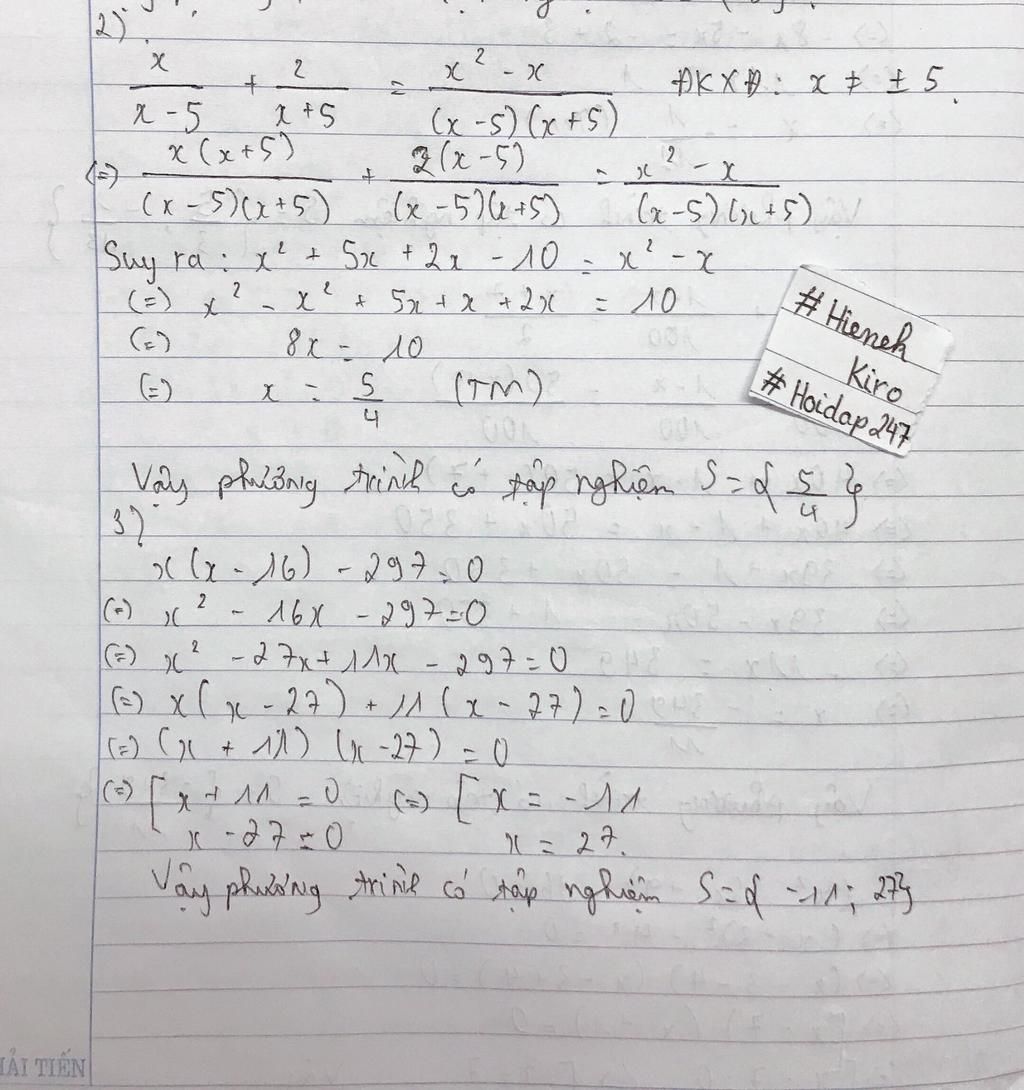 2)
x/(x-5) + 2/(x+5) = (x² - x)/((x-5)(x+5)) ĐKXĐ: x ≠ ± 5.
(=) x(x+5)/((x-5)(x+5)) + 2(x-5)/((x-5)(x+5)) = (x² - x)/((x-5)(x+5))
Suy ra: x² + 5x + 2x - 10 = x² - x
(=) x² - x² + 5x + x + 2x = 10
(=) 8x = 10
(=) x = 5/4 (TM)
#Hieneh
Kiro
#Hoidap247
Vậy phương trình có tập nghiệm S = { 5/4 }
3)
x(x - 16) - 297 = 0
(=) x² - 16x - 297 = 0
(=) x² - 27x + 11x - 297 = 0
(=) x(x - 27) + 11(x - 27) = 0
(=) (x + 11)(x - 27) = 0
(=) [ x + 11 = 0 (=) [ x = -11
x - 27 = 0 x = 27.
Vậy phương trình có tập nghiệm S = { -11; 27}
HẢI TIẾN